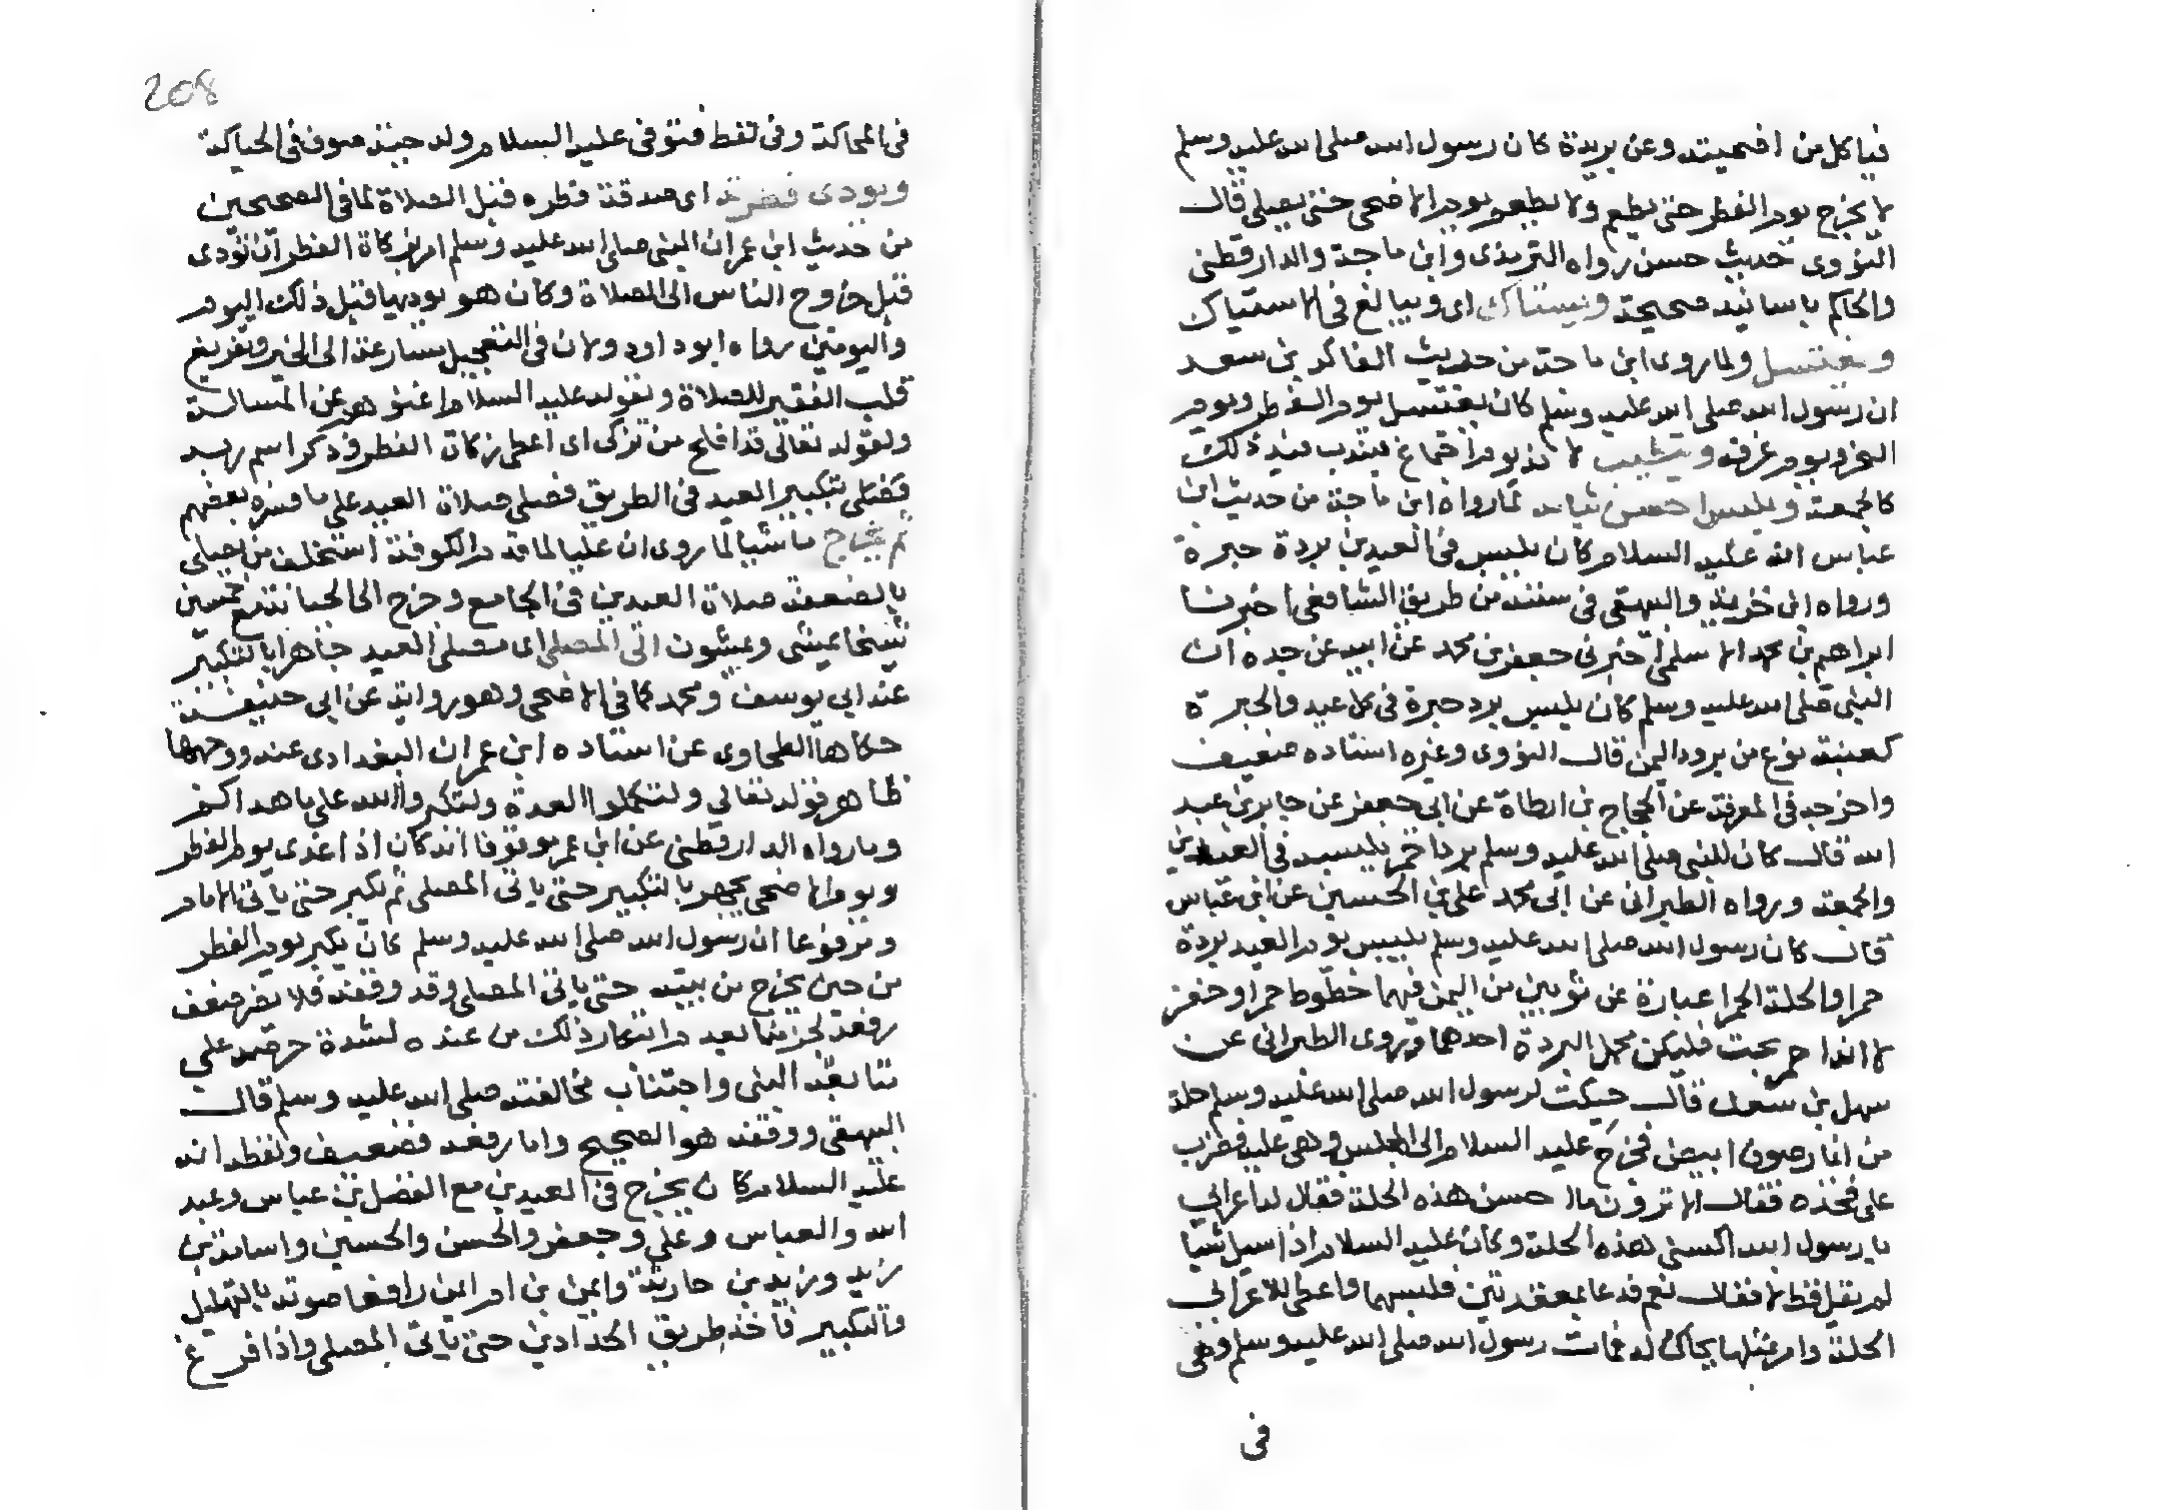 فياكل من اضحيته وعن بريدة كان رسول الله صلى الله عليه وسلم
لا يخرج يوم الفطر حتى يطعم ولا يطعم يوم الاضحى حتى يصلى قال
النووى حديث حسن رواه الترمذى وابن ماجة والدارقطنى
والحاكم باسانيد صحيحة ويستاك اى ويبالغ فى الاستياك
ويغتسل ولما روى ابن ماجة من حديث الفاكه بن سعد
ان رسول الله صلى الله عليه وسلم كان يغتسل يوم الفطر ويوم
النحر ويوم عرفة ويتطيب لانه يوم اجتماع فيندب فيه ذلك
كالجمعة ويلبس احسن ثيابه لما رواه ابن ماجة من حديث ابن
عباس انه عليه السلام كان يلبس فى العيدين بردة حبرة
ورواه ابن خزيمة والبيهقى فى سننه من طريق الشافعى اخبرنا
ابراهيم بن محمد الاسلمى اخبرنى جعفر بن محمد عن ابيه عن جده ان
النبى صلى الله عليه وسلم كان يلبس برد حبرة فى كل عيد والحبرة
كعنبة نوع من برود اليمن قال النووى وغيره اسناده ضعيف
واخرجه فى المعرفة عن الحجاج بن ارطاة عن ابى جعفر عن جابر بن عبد
الله قال كان للنبى صلى الله عليه وسلم بردا حمر يلبسه فى العيدين
والجمعة ورواه الطبرانى عن ابى محمد على بن الحسين عن ابن عباس
قال كان رسول الله صلى الله عليه وسلم يلبس يوم العيد بردة
حمرا والحلة الحمرا عبارة عن ثوبين من اليمن فيهما خطوط حمر وخضر
لا انه احمر بحت فليكن محل البردة احدهما وروى الطبرانى عن
سهل بن سعد قال حيكت لرسول الله صلى الله عليه وسلم حلة
من انمار صوف ابيض فخرج عليه السلام الى المجلس وهى عليه فضرب
على فخذه فقال الا ترون ما احسن هذه الحلة فقال له اعرابى
يا رسول الله اكسنى هذه الحلة وكان عليه السلام اذا سيل شيا
لم يقل قط لا فقال نعم فدعا بمعقدتين فلبسهما واعطى الاعرابى
الحلة وامر بمثلها يحاك له فمات رسول الله صلى الله عليه وسلم وهى
فى
208
فى المحاكة وفى لفظ فتوفى عليه السلام وله جبة صوف فى الحياكة
ويودى فطرته اى صدقة فطره قبل الصلاة لما فى الصحيحين
من حديث ابن عمر ان النبى صلى الله عليه وسلم امر بزكاة الفطر ان تودى
قبل خروج الناس الى الصلاة وكان هو يوديها قبل ذلك اليوم
واليومين رواه ابو داود ولان فى التعجيل مسارعة الى الخير وتفريغ
قلب الفقير للصلاة ولقوله عليه السلام اغنوهم عن المسالة
ولقوله تعالى قد افلح من تزكى اى اعطى زكاة الفطر وذكر اسم ربه
فصلى بتكبير العيد فى الطريق فصلى صلاة العيد على ما فسره بعضهم
ثم يخرج ماشيا لما روى ان عليا لما قدم الكوفة استخلف من يصلى
بالضعفة صلاة العيدين فى الجامع وخرج الى الجبانة مع خمسين
شيخا يمشى ويمشون الى المصلى اى مصلى العيد جاهرا بالتكبير
عند ابى يوسف ومحمد كما فى الاضحى وهو رواية عن ابى حنيفة
حكاها الطحاوى عن استاده ابن عمران البغدادى عنه ووجهها
ظاهر قوله تعالى ولتكملوا العدة ولتكبروا الله على ما هداكم
وما رواه الدارقطنى عن ابن عمر موقوفا انه كان اذا غدى يوم الفطر
ويوم الاضحى يجهر بالتكبير حتى ياتى المصلى ثم يكبر حتى ياتى الامام
ومرفوعا ان رسول الله صلى الله عليه وسلم كان يكبر يوم الفطر
من حين يخرج من بيته حتى ياتى المصلى وقد وقفه فلا يضر ضعف
رفعه لجزمنا بعدم ابتكار ذلك من عنده لشدة حرصه على
متابعة النبى واجتناب مخالفته صلى الله عليه وسلم قال
البيهقى ووقفه هو الصحيح واما رفعه فضعيف ولفظه انه
عليه السلام كان يخرج فى العيدين مع الفضل بن عباس وعبد
الله والعباس وعلى وجعفر والحسن والحسين واسامة بن
زيد وزيد بن حارثة وايمن بن ام ايمن رافعا صوته بالتهليل
والتكبير فاخذ طريق الحدادين حتى ياتى المصلى واذا فرغ